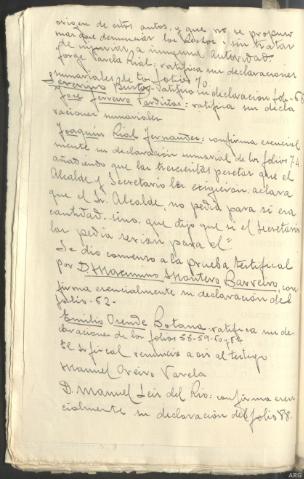 origen de estos autos, y que no se propuso
mas que denunciar los hechos sin tratar
de injuriar a ninguna autoridad
Jorge Varela Rial, ratifica su declaraciones
sumariales de los folios 70
ratifico su declaracion folio 6
José Ferreiro ratifica su decla
raciones sumariales
Joaquin Rial Fernandez: confirma esencial
mente su declaración sumarial de los folios 74
añadiendo que las trescientas pesetas que el
Alcalde y Secretario le exigieran, aclara
que el Sr. Alcalde no pedia para si esa
cantidad, sino, que dijo que si el Secretario
las pedia serian para el"
Se dio comienzo a la prueba testifical
por D. Maximino Montero Barreiro, con
firma esencialmente su declaración del
folio 52
Emilio Ocende Botana ratifica su de
claraciones de los folios 56-59-60 y 64
El Sr fiscal renuncia a oir al testigo
Manuel Oreiro Varela
D. Manuel Leis del Rio: confirma esen
cialmente su declaración del folio 88.
ARG